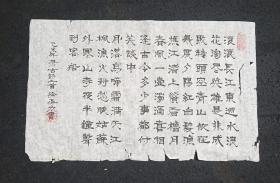 滾滾長江東逝水浪
花淘盡英雄是非成
敗轉頭空青山依舊在
幾度夕陽紅白髮漁
樵江渚上慣看秋月
春風一壺濁酒喜相
逢古今多少事都付
笑談中
月落烏啼霜滿天江
楓漁火對愁眠姑蘇城
外寒山寺夜半鐘聲
到客船